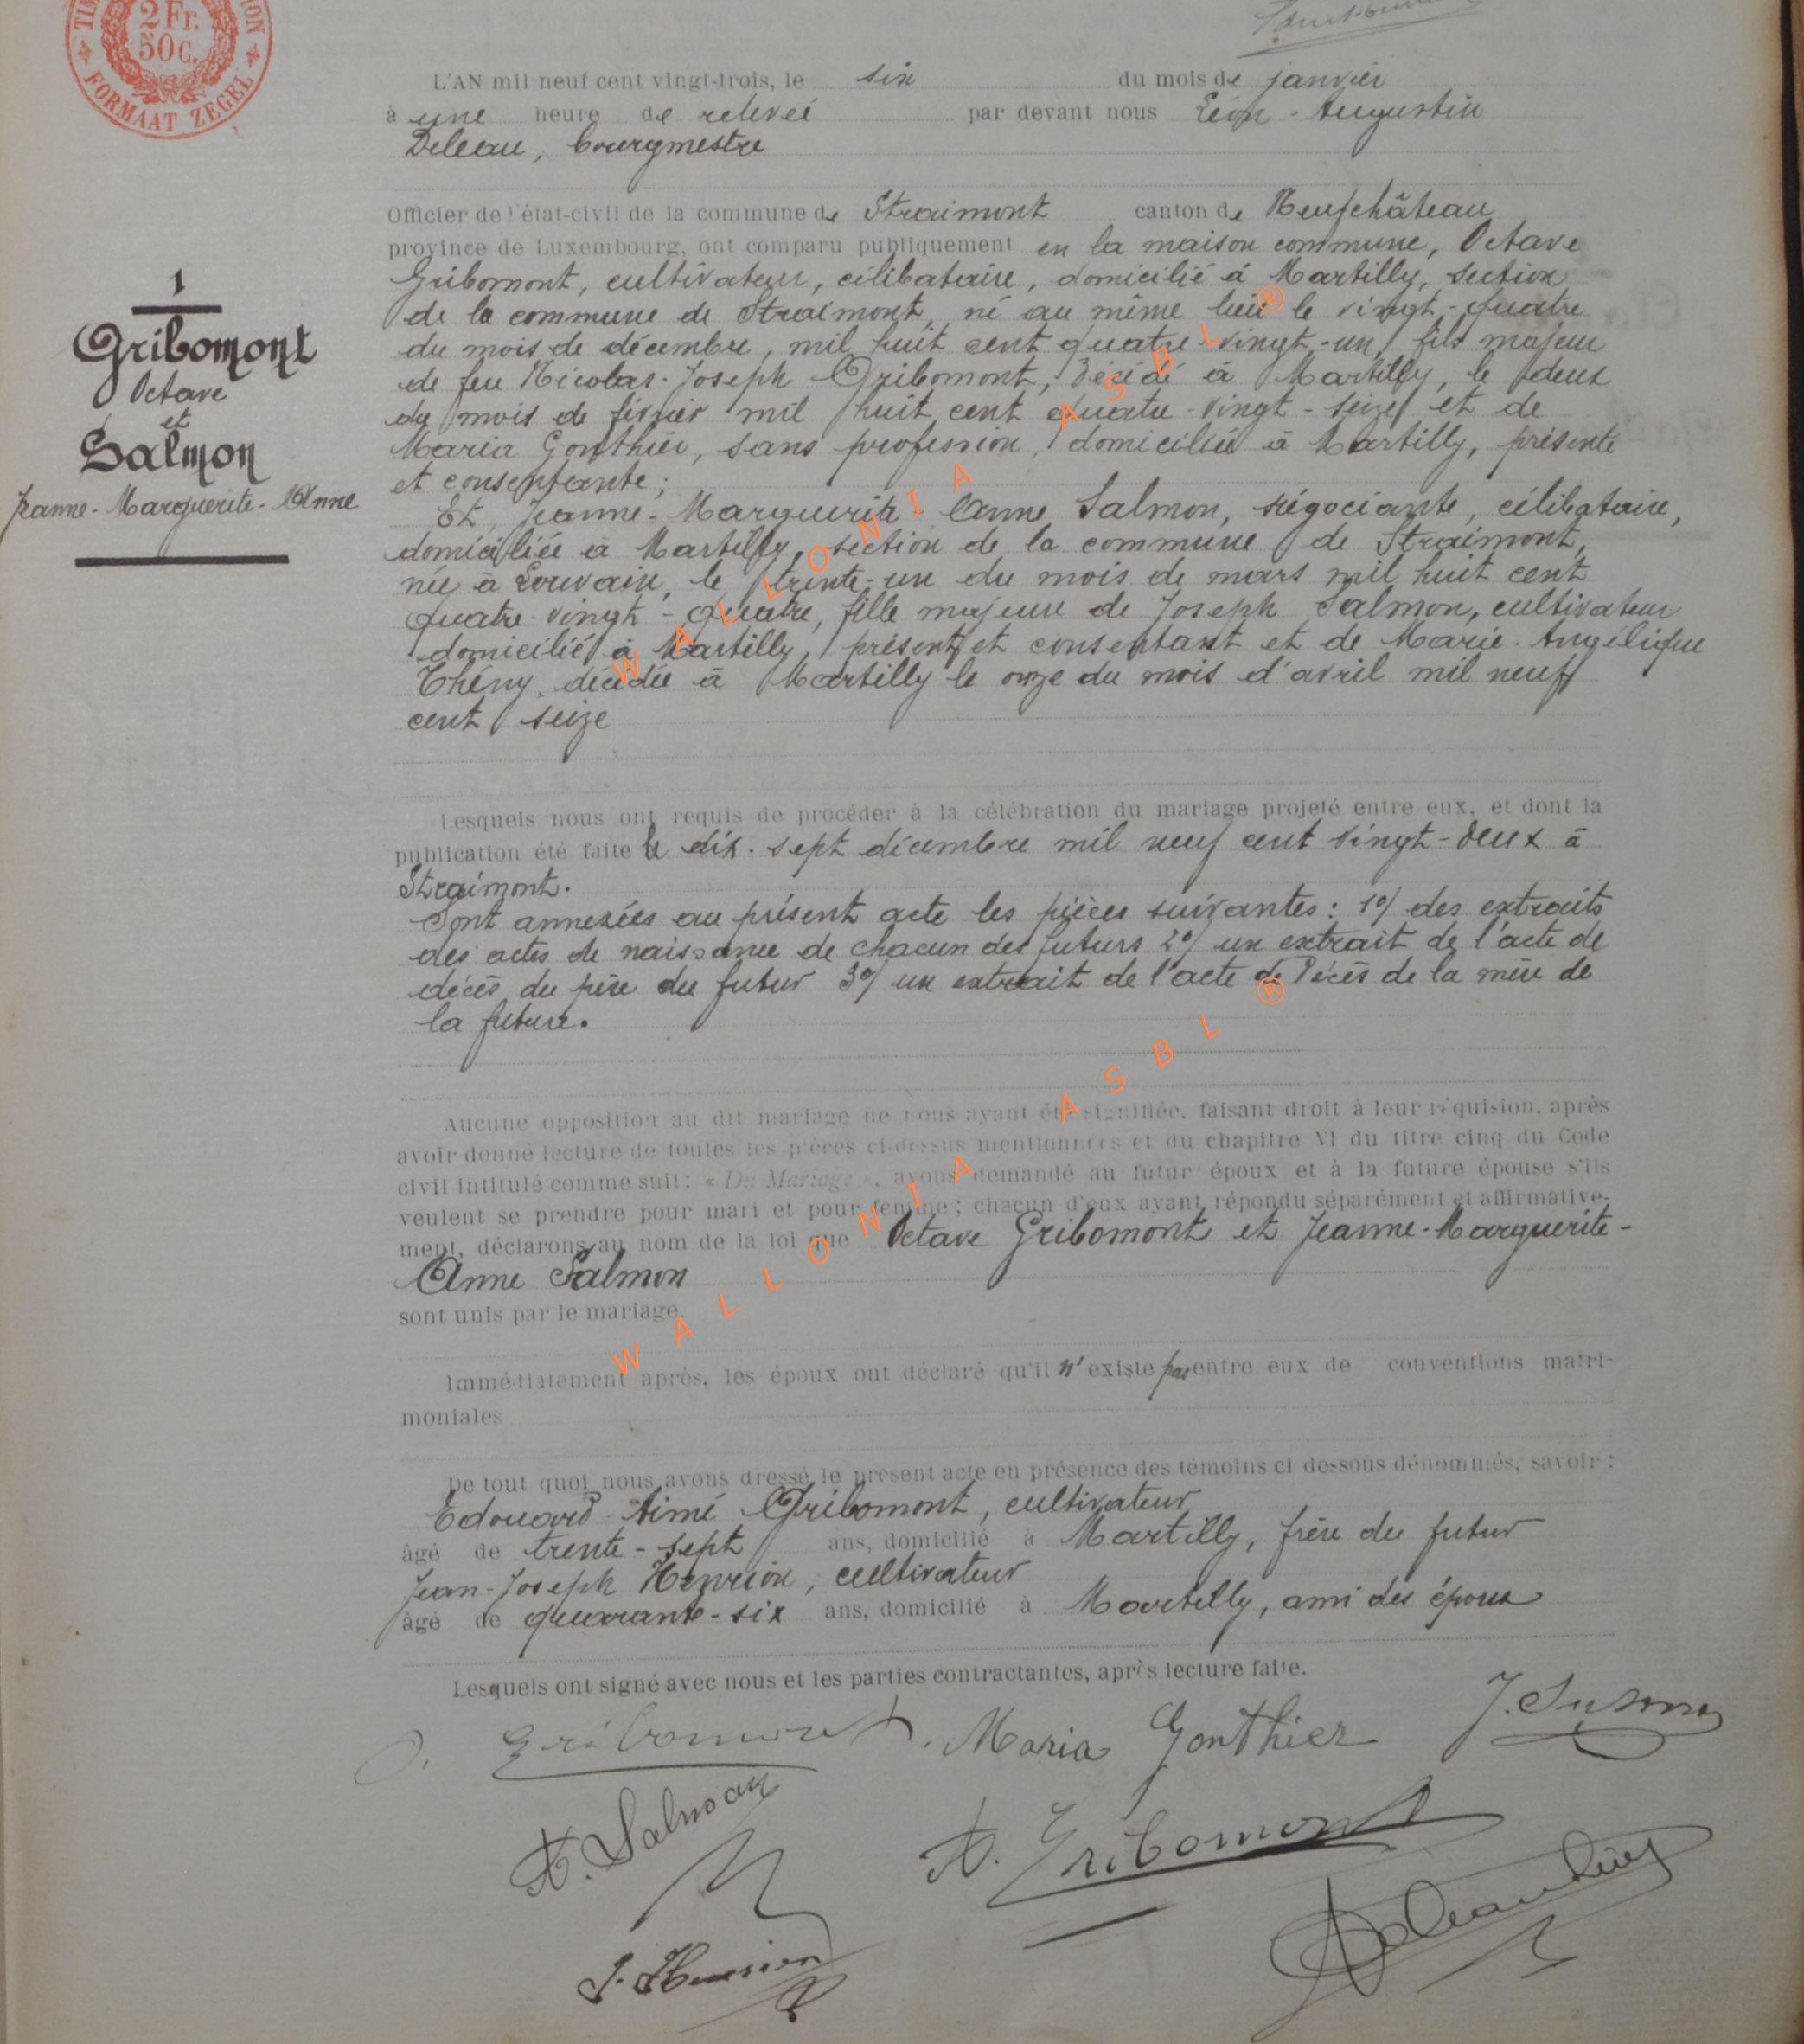 2 Fr.
50c.
FORMAAT ZEGEL
L'AN mil neuf cent vingt-trois, le six du mois de janvier
à une heure de relevée par devant nous Léon-Augustin
Deleau, bourgmestre
Officier de l'état-civil de la commune de Straimont canton de Neufchâteau
province de Luxembourg, ont comparu publiquement en la maison commune, Octave
Gribomont, cultivateur, célibataire, domicilié à Martilly, section
de la commune de Straimont, né au même lieu le vingt-quatre
du mois de décembre, mil huit cent quatre-vingt-un, fils majeur
de feu Nicolas-Joseph Gribomont, décédé à Martilly, le deux
du mois de février mil huit cent quatre-vingt-seize et de
Maria Gonthier, sans profession, domiciliée à Martilly, présente
et consentante;
Et, Jeanne-Marguerite Anne Salmon, négociante, célibataire,
domiciliée à Martilly, section de la commune de Straimont,
née à Louvain, le trente-un du mois de mars mil huit cent
quatre-vingt-quatre, fille majeure de Joseph Salmon, cultivateur
domicilié à Martilly, présent et consentant et de Marie-Angélique
Thény, décédée à Martilly le onze du mois d'avril mil neuf
cent seize
1
Gribomont
Octave
et
Salmon
Jeanne-Marguerite-Anne
Lesquels nous ont requis de procéder à la célébration du mariage projeté entre eux, et dont la
publication été faite le dix-sept décembre mil neuf cent vingt-deux à
Straimont.
Sont annexées au présent acte les pièces suivantes: 1°/ des extraits
des actes de naissance de chacun des futurs 2°/ un extrait de l'acte de
décès du père du futur 3°/ un extrait de l'acte de décès de la mère de
la future.
Aucune opposition au dit mariage ne nous ayant été signifiée, faisant droit à leur réquision, après
avoir donné lecture de toutes les pièces ci-dessus mentionnées et du chapitre VI du titre cinq du Code
civil intitulé comme suit: « Du Mariage », avons demandé au futur époux et à la future épouse s'ils
veulent se prendre pour mari et pour femme; chacun d'eux ayant répondu séparément et affirmative-
ment, déclarons au nom de la loi que Octave Gribomont et Jeanne-Marguerite-
Anne Salmon
sont unis par le mariage.
Immédiatement après, les époux ont déclaré qu'il n'existe pas entre eux de conventions matri-
moniales
De tout quoi nous avons dressé le présent acte en présence des témoins ci dessous dénommés, savoir:
Edouard-Aimé Gribomont, cultivateur
âgé de trente-sept ans, domicilié à Martilly, frère du futur
Jean-Joseph Henrion, cultivateur
âgé de quarante-six ans, domicilié à Martilly, ami des époux
Lesquels ont signé avec nous et les parties contractantes, après lecture faite.
O. Gribomont. Maria Gonthier
Salmon
A. Gribomont
J. Henrion
WALLONIA ASBL ®
WALLONIA ASBL ®